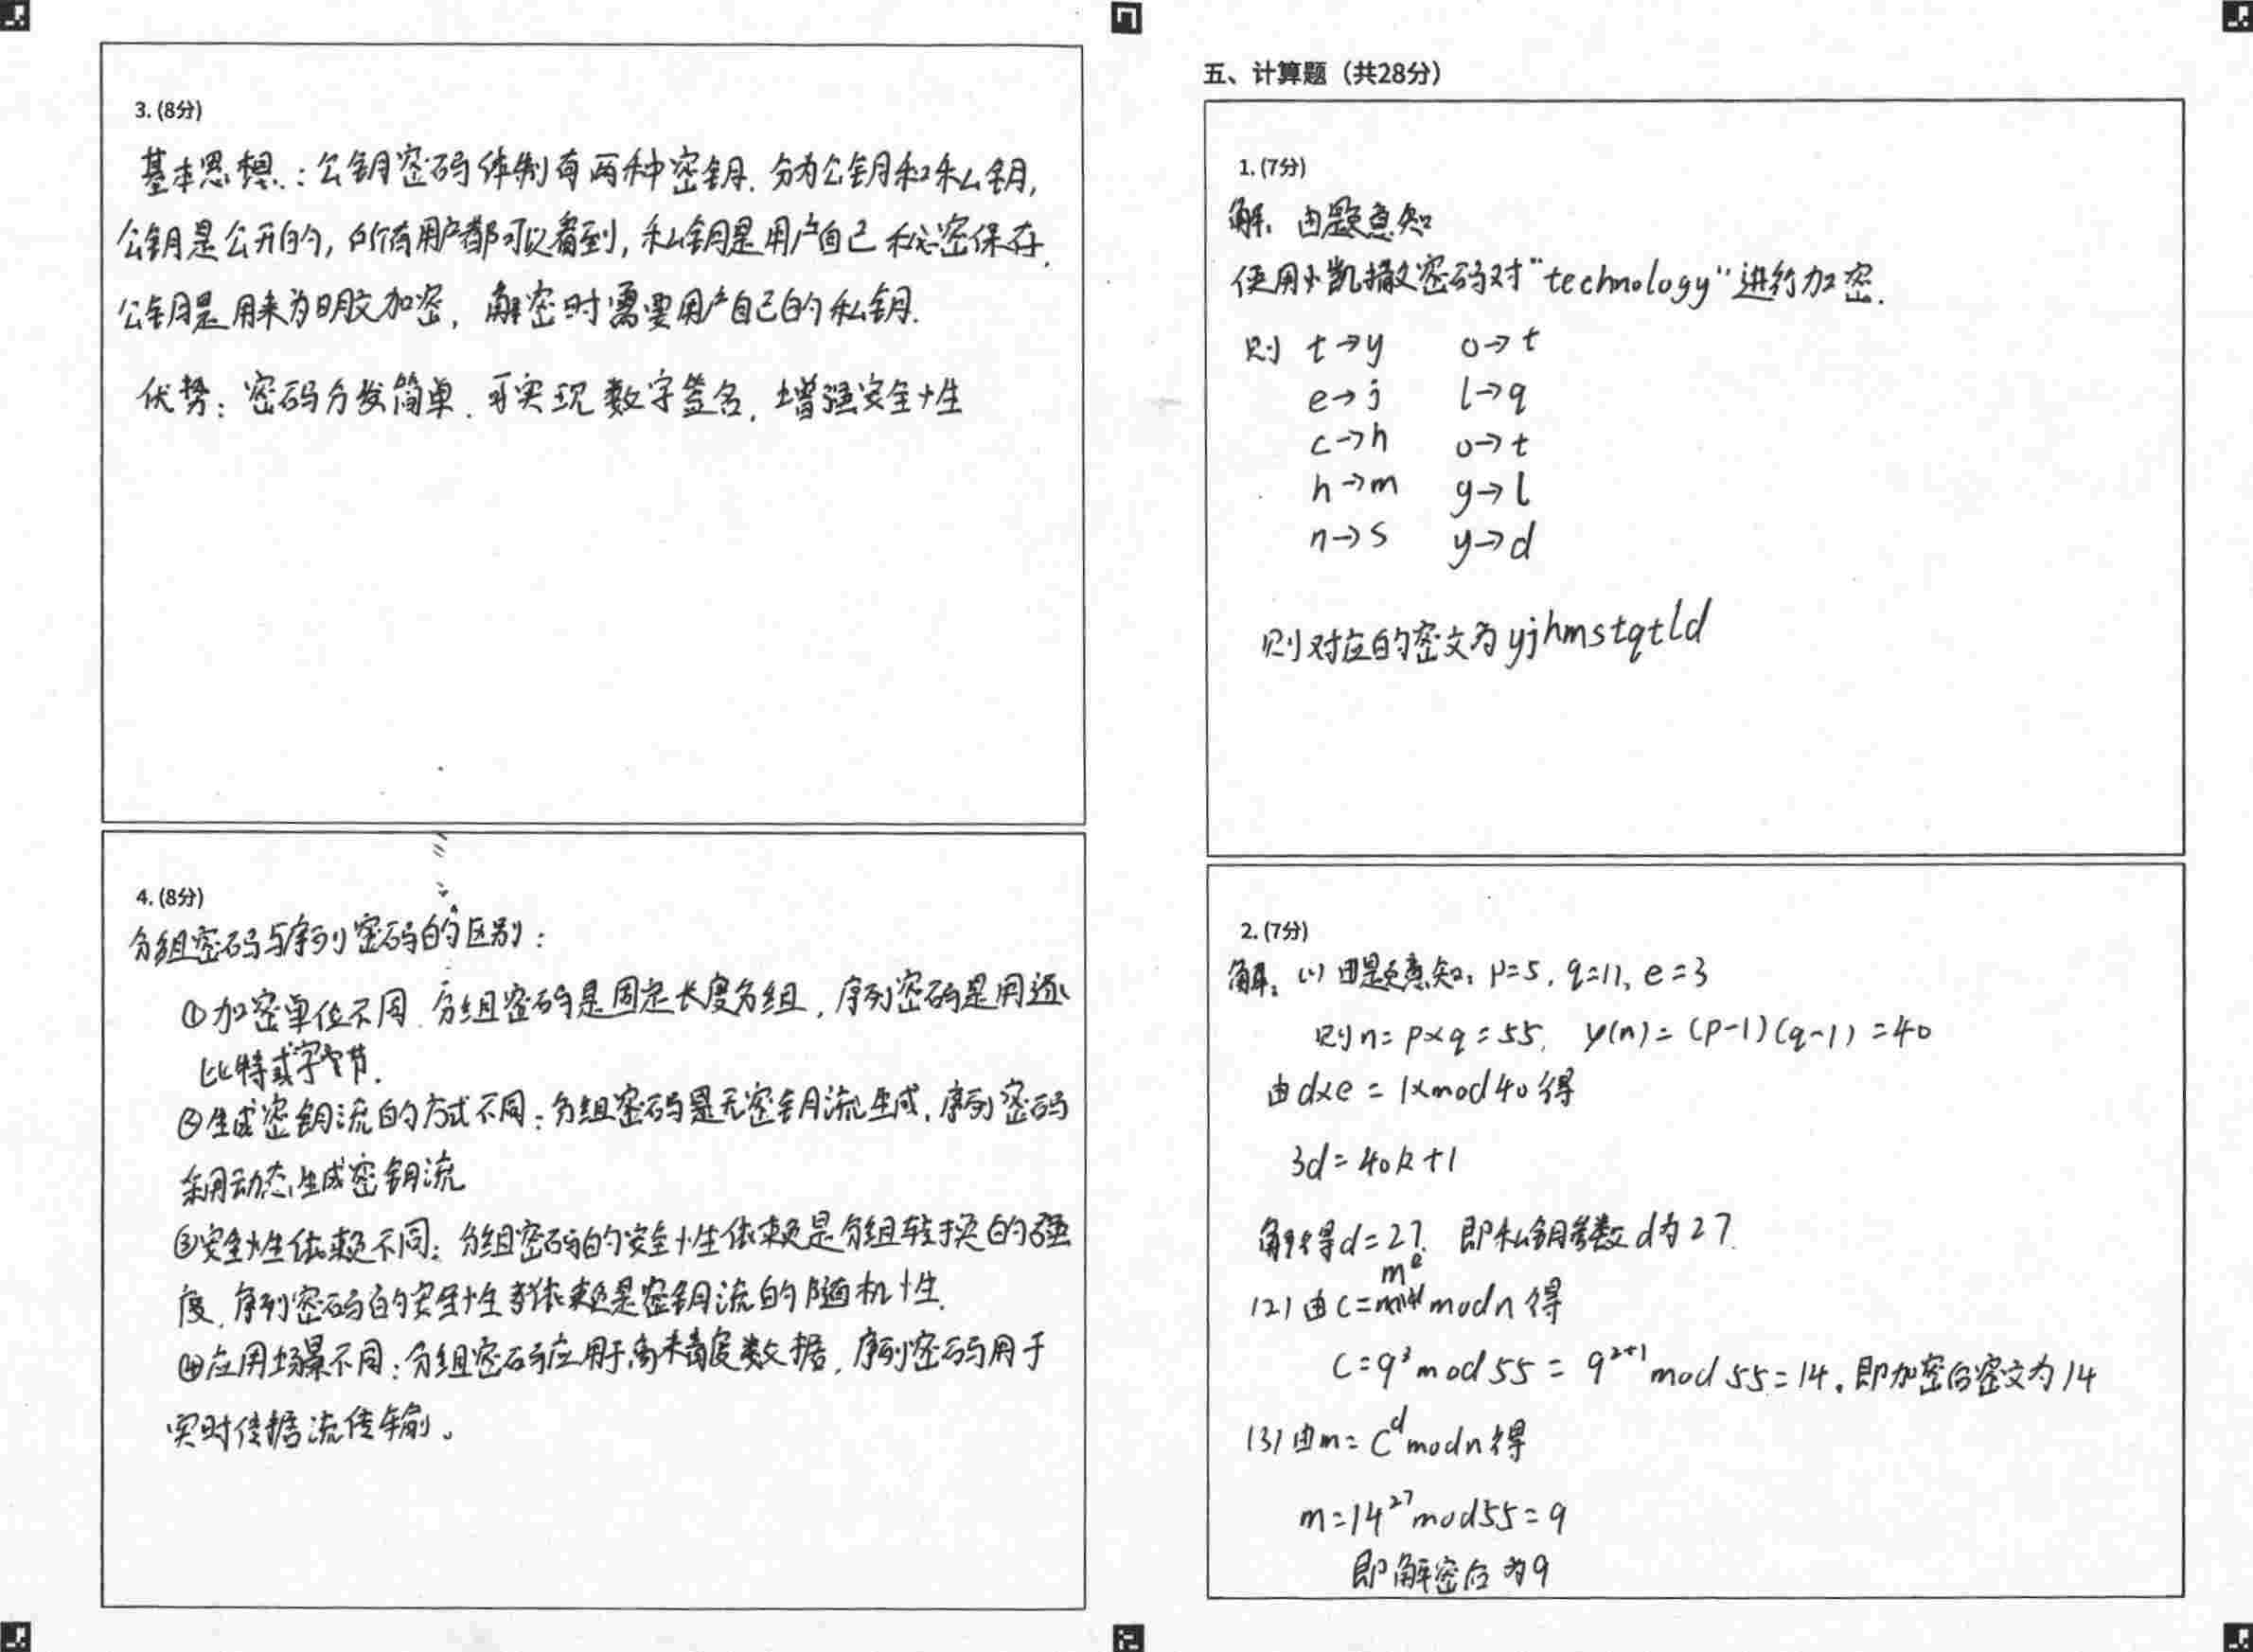 3. (8分)
基本思想：公钥密码体制有两种密钥. 分为公钥和私钥,
公钥是公开的, 所有用户都可以看到, 私钥是用户自己秘密保存.
公钥是用来为明文加密, 解密时需要用户自己的私钥.
优势：密码分发简单. 可实现数字签名, 增强安全性
4. (8分)
分组密码与序列密码的区别：
①加密单位不同. 分组密码是固定长度分组, 序列密码是用逐
比特或字节.
②生成密钥流的方式不同：分组密码是无密钥流生成, 序列密码
采用动态生成密钥流
③安全性依赖不同：分组密码的安全性依赖是分组转换的强
度, 序列密码的安全性依赖是密钥流的随机性.
④应用场景不同：分组密码应用于高精度数据, 序列密码用于
实时传据流传输。
五、计算题（共28分）
1. (7分)
解: 由题意知
使用凯撒密码对"technology"进行加密.
则 t→y o→t
e→j l→q
c→h o→t
h→m y→l
n→s y→d
则对应的密文为yjhmstqtld
2. (7分)
解: (1) 由题意知: p=5, q=11, e=3
则n=p×q=55, φ(n)=(p-1)(q-1)=40
由d×e=1×mod40得
3d=40k+1
解得d=27. 即私钥参数d为27.
(2) 由C=m^e modn得
C=9^3 mod55=9^{2+1} mod55=14. 即加密后密文为14
(3) 由m=C^d modn得
m=14^27 mod55=9
即解密后为9